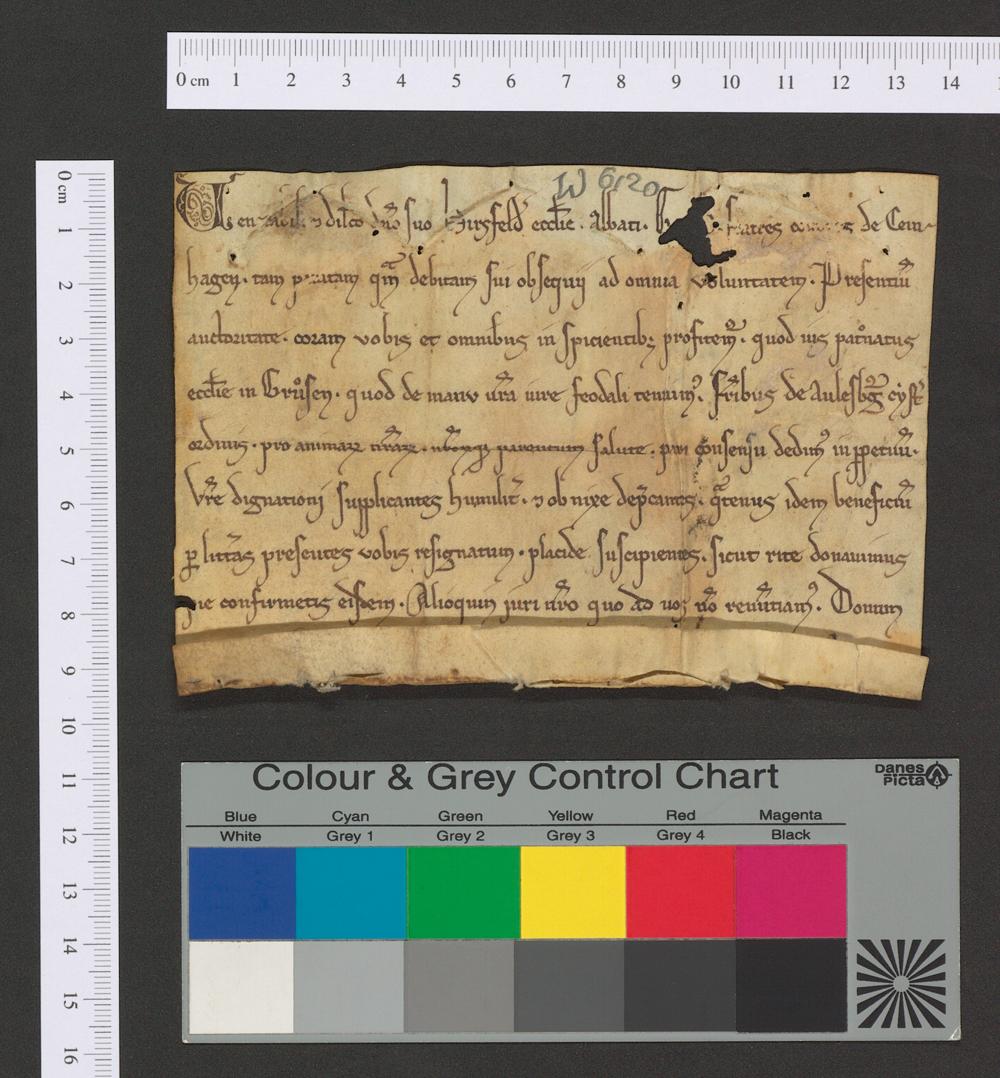 0 cm 1 2 3 4 5 6 7 8 9 10 11 12 13 14
0 cm 1 2 3 4 5 6 7 8 9 10 11 12 13 14 15 16
W 6120
dilco dño suo hirsfeld ecclie. Abbati. fratres de Cem
hagen. tam qm debitam sui obsequij ad omnia voluntatem. Presentiu
auctoritate. coram vobis et omnibus inspicientibz profitem. quod ius patnatus
ecclie in Grusen. quod de manu ura iure feodali tenuim. fribus de Aulesbg cyst
ordinis. pro animaz nrarz. parentum salute. pari consensu dedim in ppetuu.
Vre dignationi supplicantes humilit. ob nixe depcantes. qtenus idem beneficiu
p litteras presentes vobis resignatum. placide suscipientes. sicut rite donauimus
confirmetis eisdem. Alioquin juri uro quo ad uos no renutiam. Donum
Colour & Grey Control Chart
Danes Picta
Blue Cyan Green Yellow Red Magenta
White Grey 1 Grey 2 Grey 3 Grey 4 Black